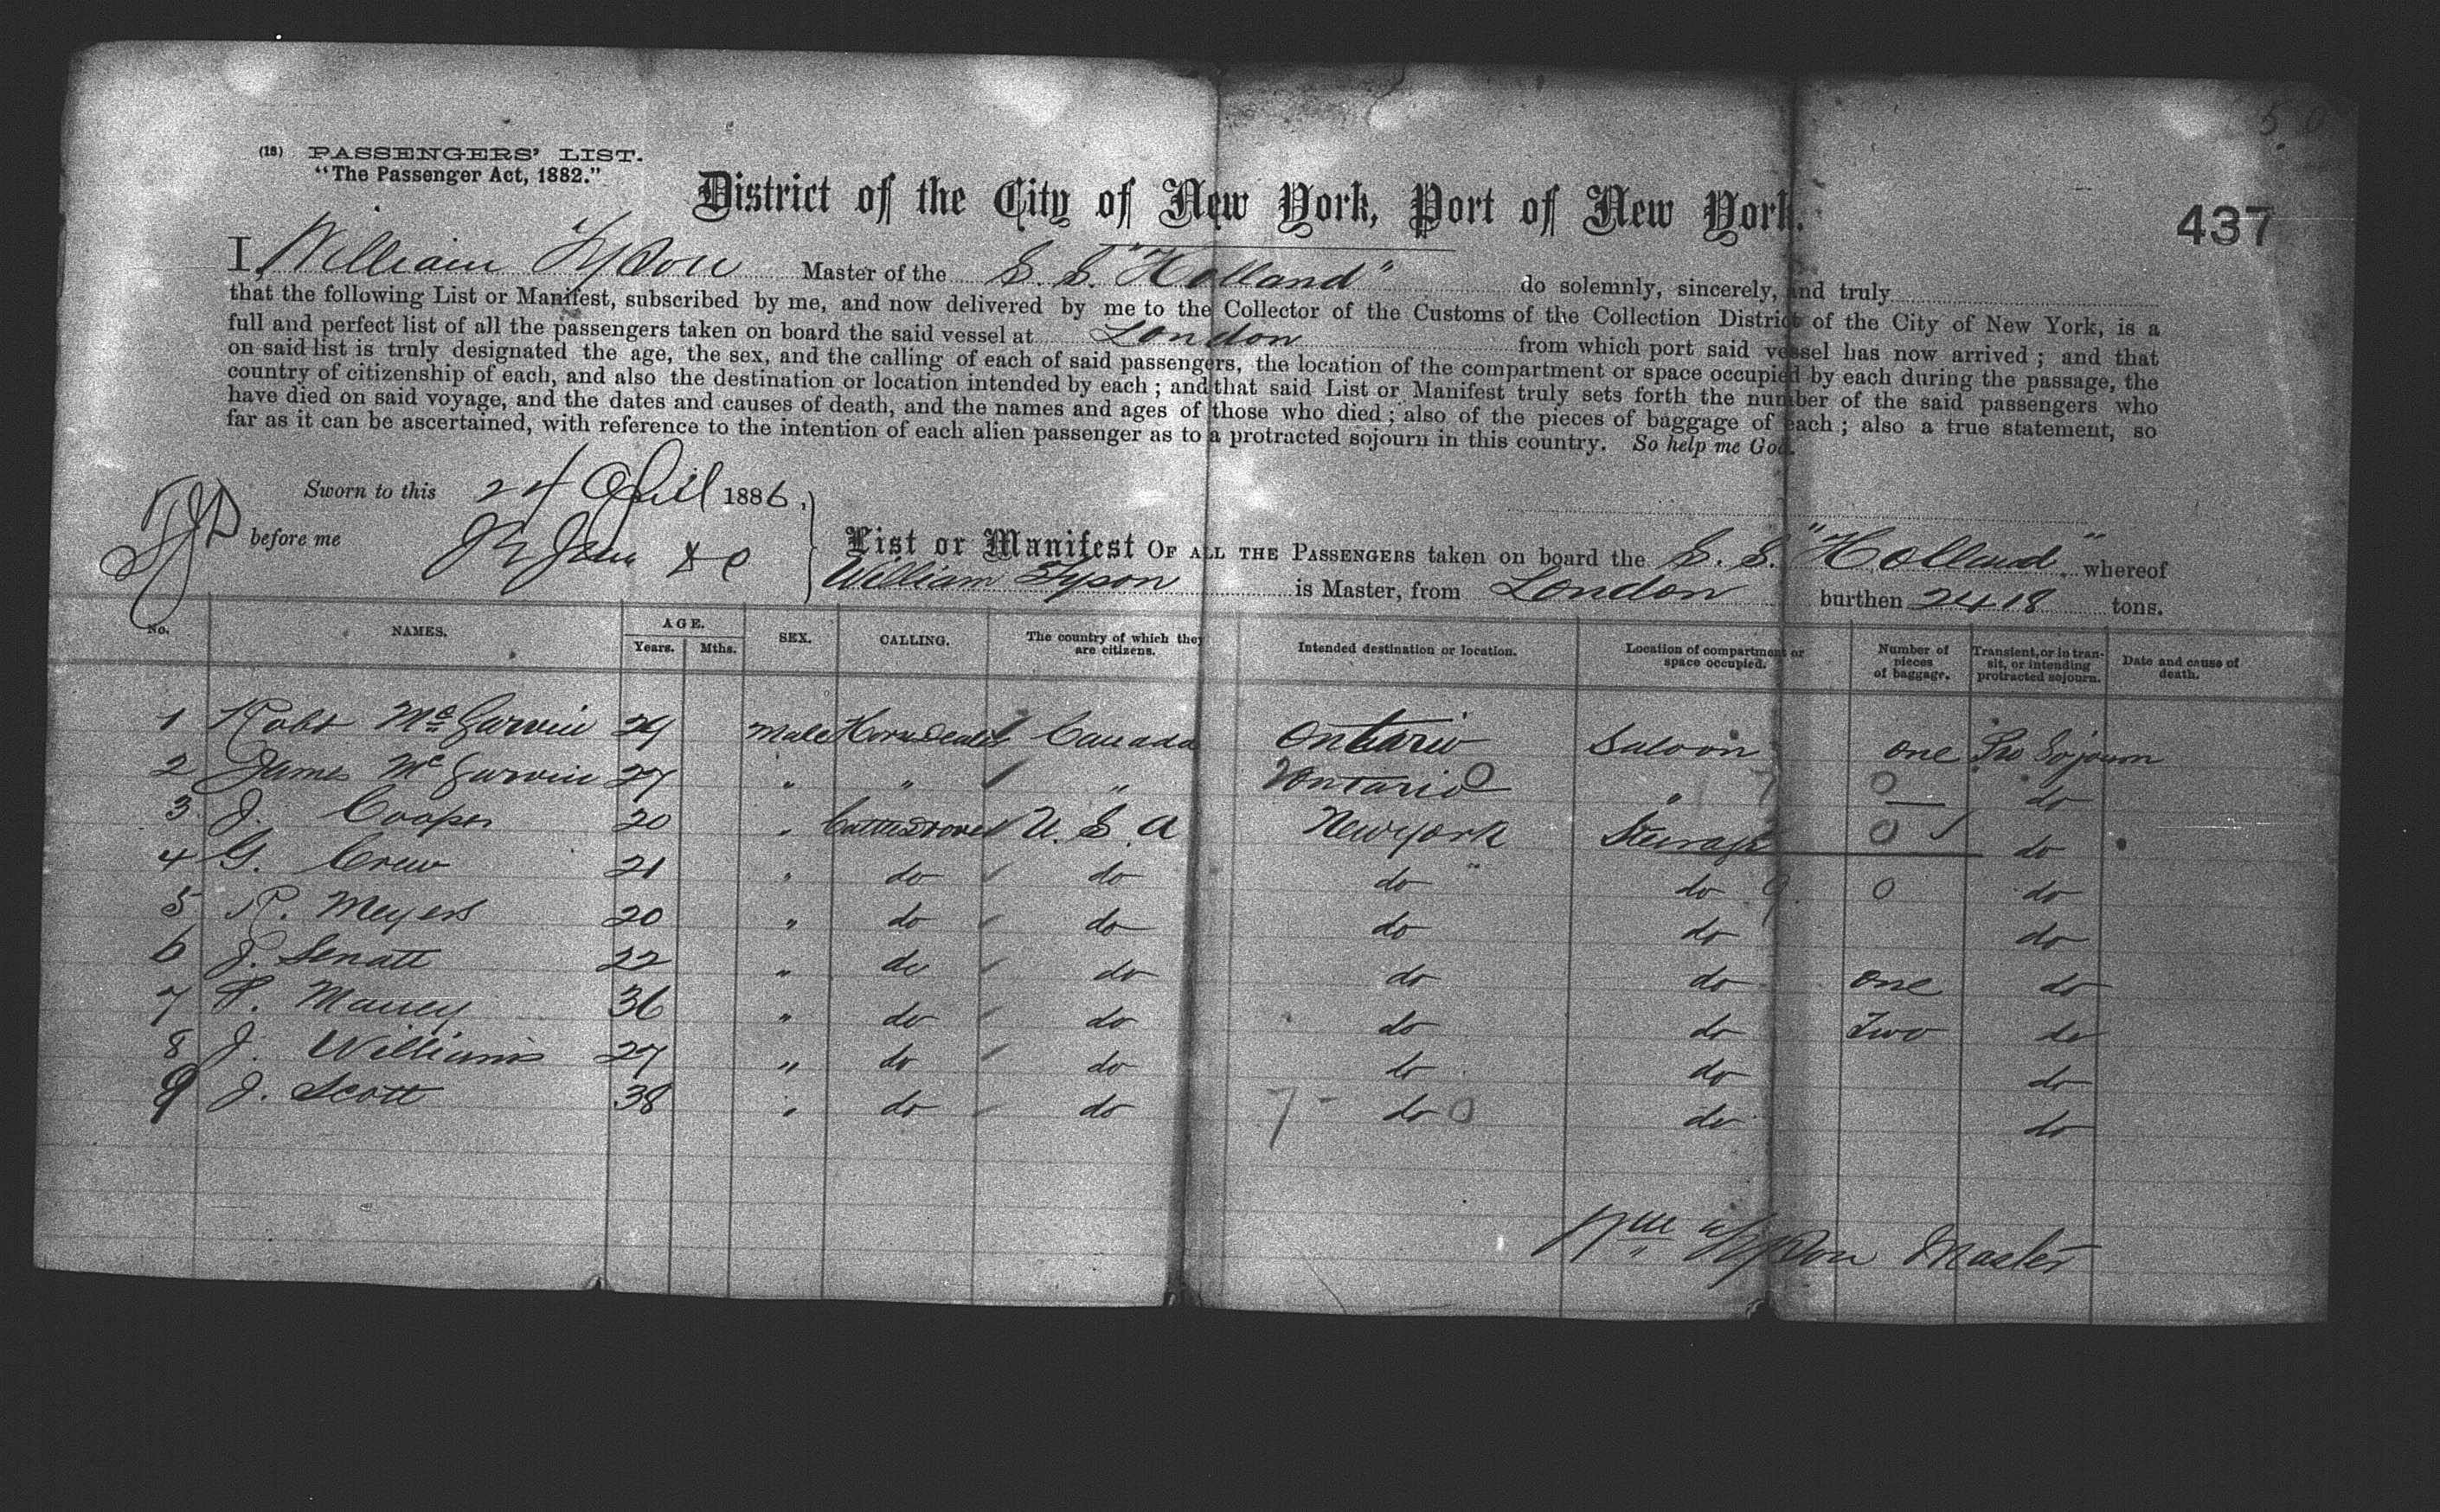 5.0
(18) PASSENGERS' LIST.
"The Passenger Act, 1882."
District of the City of New York, Port of New York.
437
I, William Tyson Master of the S. S. "Holland" do solemnly, sincerely, and truly
that the following List or Manifest, subscribed by me, and now delivered by me to the Collector of the Customs of the Collection District of the City of New York, is a
full and perfect list of all the passengers taken on board the said vessel at London from which port said vessel has now arrived; and that
on said list is truly designated the age, the sex, and the calling of each of said passengers, the location of the compartment or space occupied by each during the passage, the
country of citizenship of each, and also the destination or location intended by each; and that said List or Manifest truly sets forth the number of the said passengers who
have died on said voyage, and the dates and causes of death, and the names and ages of those who died; also of the pieces of baggage of each; also a true statement, so
far as it can be ascertained, with reference to the intention of each alien passenger as to a protracted sojourn in this country. So help me God.
Sworn to this 24 April 1886,
before me
List or Manifest OF ALL THE PASSENGERS taken on board the S. S. "Holland" whereof
William Tyson is Master, from London burthen 2418 tons.
No. NAMES. AGE. Years. Mths. SEX. CALLING. The country of which they are citizens. Intended destination or location. Location of compartment or space occupied. Number of pieces of baggage. Transient, or in transit, or intending protracted sojourn. Date and cause of death.
1 Robt McGarvin 24 Male Horse Dealer Canada Ontario Saloon one Pro Sojourn
2 James McGarvin 27 " " " Ontario 0 " 7 0 do
3 J. Cooper 20 " Cattledrover U. S. A New York Steerage 0 do
4 G. Crew 21 " do do do " do 9 0 do
5 R. Meyers 20 " do do do do do
6 J. Senatt 22 " do do do do one do
7 P. 36 " do do do do Two do
8 J. Williams 27 " do do do do do
9 J. Scott 38 " do do 7 - do 0 do do
Wm Tyson Master